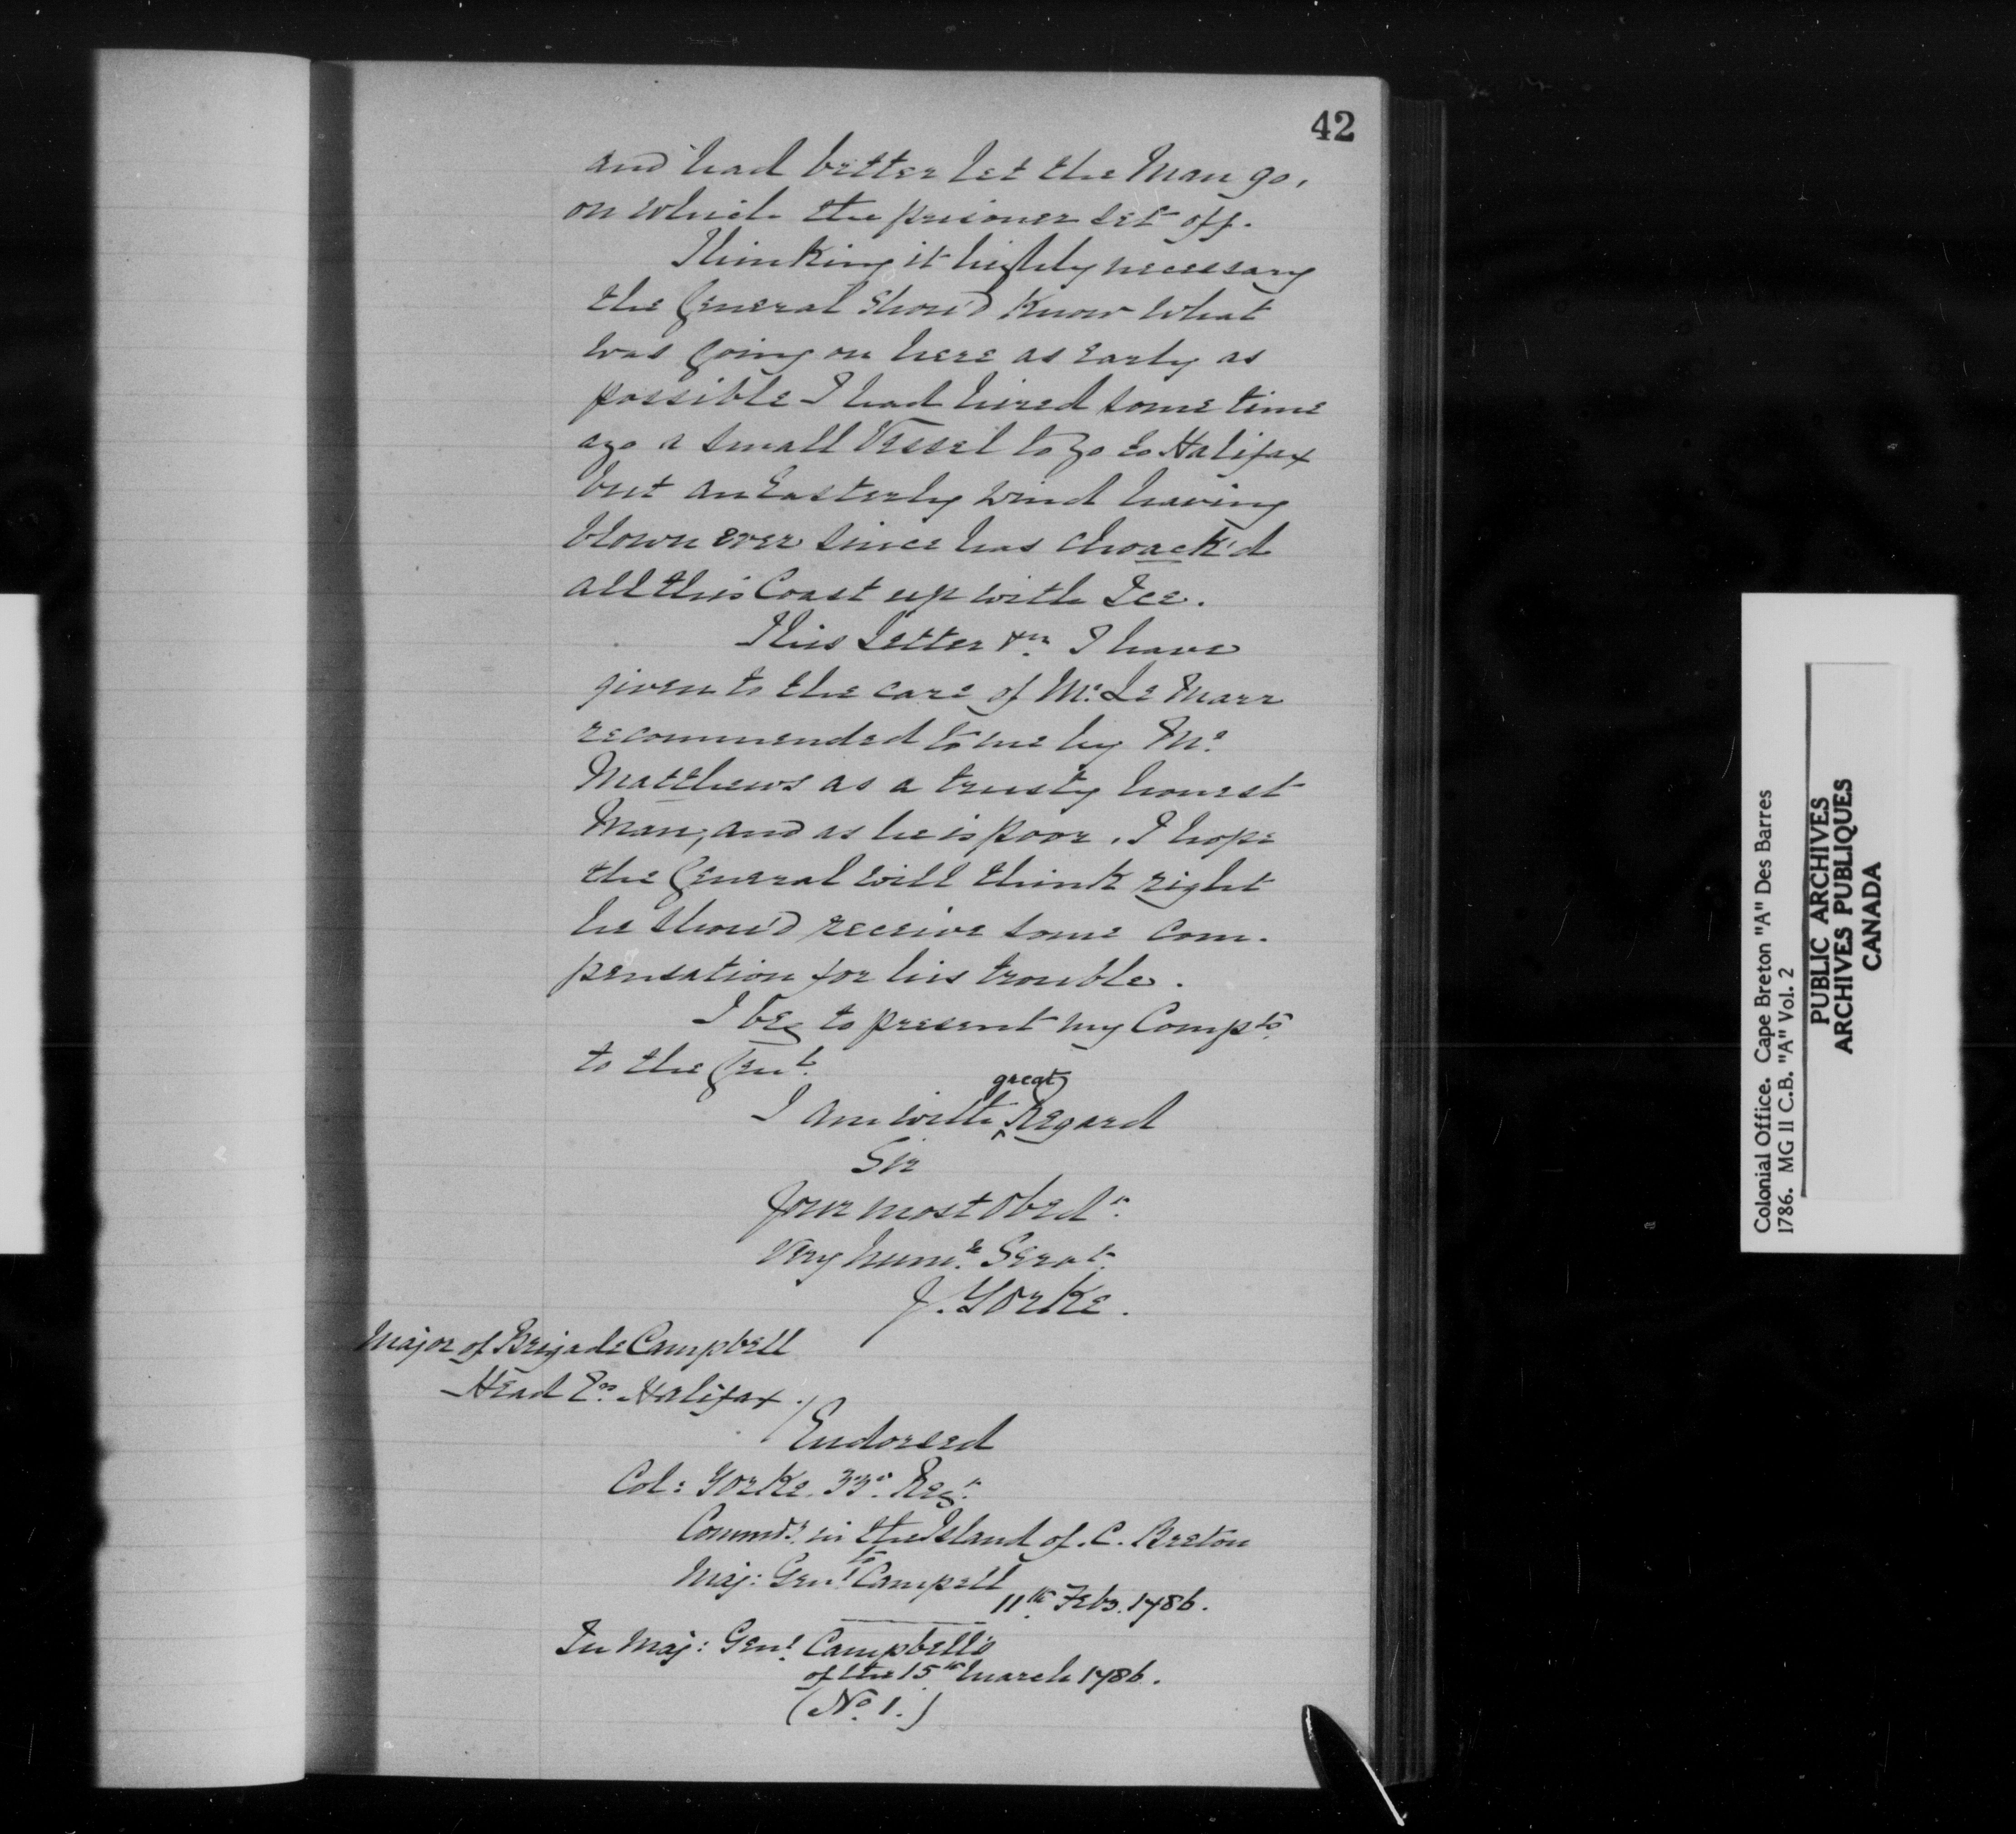 42
and had better let the Man go,
on which the prisoner set off.
Thinking it highly necessary
the General Shou'd Know what
was going on here as early as
possible I had hired some time
ago a small Vessel to go to Halifax
but an Easterly wind having
blown ever since has choack'd
all this Coast up with Ice.
This Letter &ca. I have
given to the care of Mr. Le Marr
recommended to me by Mr.
Matthews as a trusty honest
Man, and as he is poor, I hope
the General will think right
he Shou'd receive some com-
pensation for his trouble.
I beg to present my Compts.
to the Genl.
I am with great Regard
Sir
Your most obedt.
Very humle. Servt.
J. Yorke.
Major of Brigade Campbell
Head Qrs. Halifax.
Endorsed
Col: Yorke. 33d. Regt.
Commdg. in the Island of C. Breton
to
Maj: Genl. Campell
11th. Feby. 1786.
In Maj: Genl. Campbell's
of the 15th. March 1786.
(No. 1.)
Colonial Office. Cape Breton "A" Des Barres
1786. MG 11 C.B. "A" Vol. 2
PUBLIC ARCHIVES
ARCHIVES PUBLIQUES
CANADA